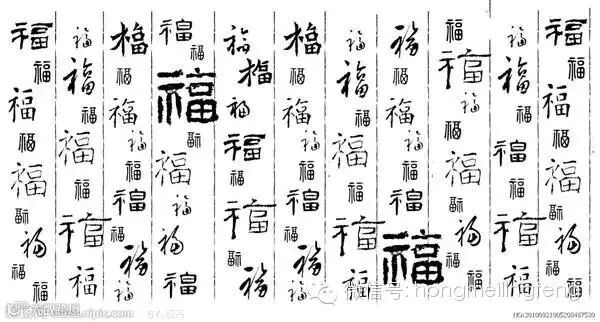 福福福福福福福福福
福福福福福福福
福福福福福福福福福
福福福福福福福福福
福福福福福福福福
福福福福福福福福福
福福福福福福福
福福福福福福福
福福福福福福福福福
福福福福福福福
福福福福福福福福福
微信号: hongmeilingfeng